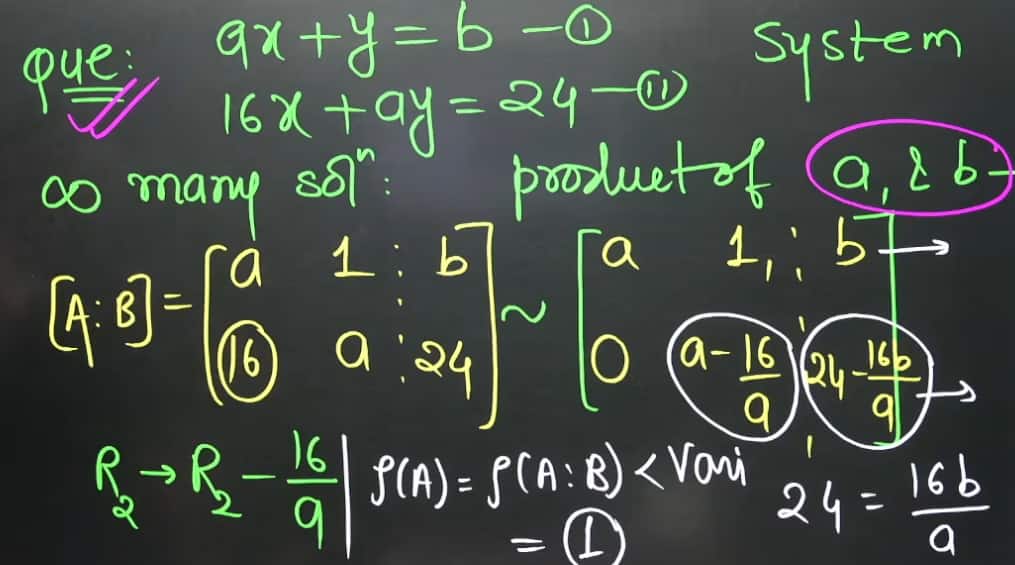 Que: ax + y = b – ① System
16x + ay = 24 – ⑪
∞ many solⁿ: product of a, & b –
[A:B] = [a 1 : b] ~ [a 1, : b] →
[⑯ a : 24] [0 a - 16/a : 24 - 16b/a] →
R₂ → R₂ - 16/a | ρ(A) = ρ(A:B) < Vari 24 = 16b/a
= ①